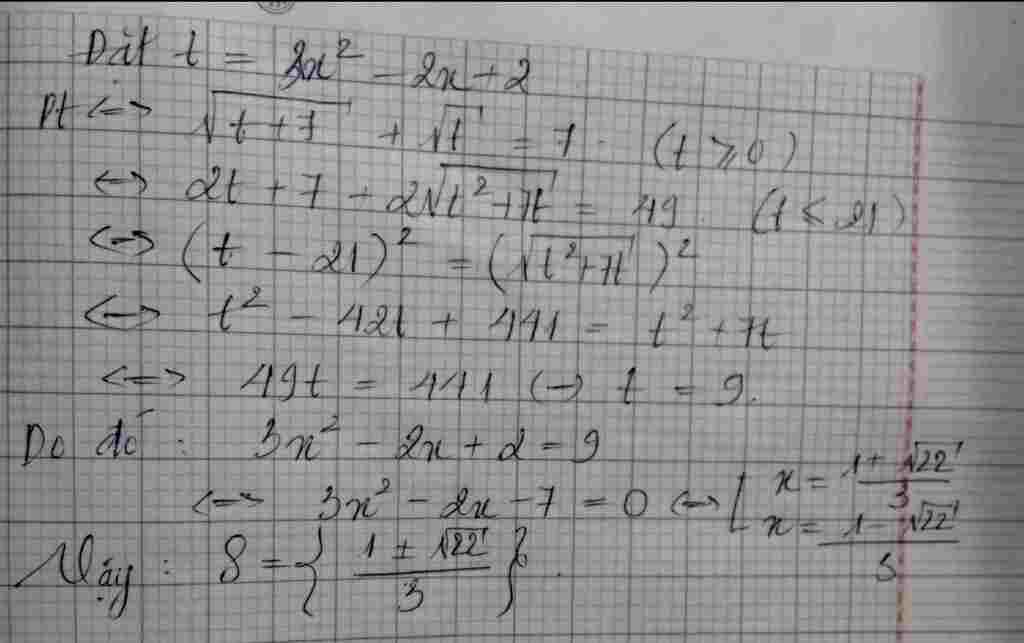 Đặt t = 3x² - 2x + 2
Pt <-> √(t+7) + √t = 7. (t ⩾ 0)
<-> 2t + 7 + 2√(t²+7t) = 49. (t < 21)
<=> (t - 21)² = (√(t²+7t))²
<-> t² - 42t + 441 = t² + 7t
<=> 49t = 441 <-> t = 9.
Do đó: 3x² - 2x + 2 = 9
<=> 3x² - 2x - 7 = 0 <-> [ x = (1 + √22)/3
x = (1 - √22)/3
Vậy: S = { (1 ± √22)/3 }.